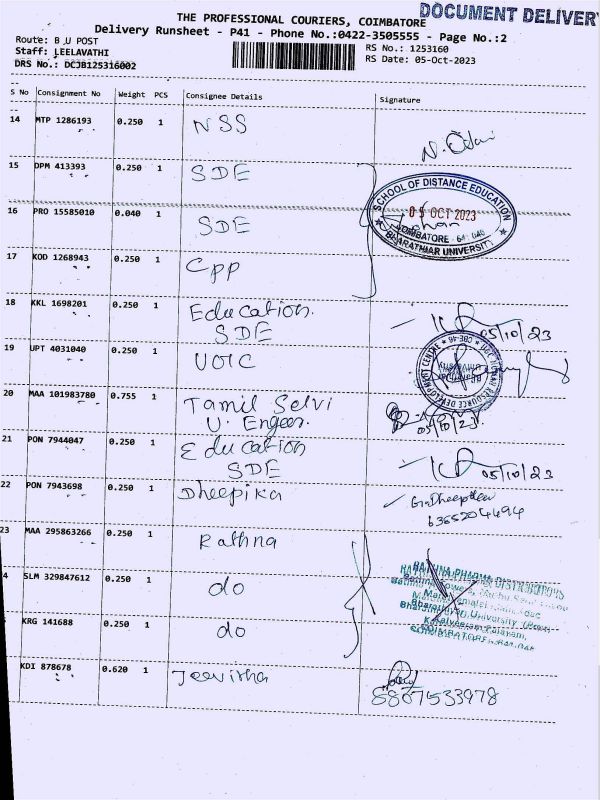 DOCUMENT DELIVERY
THE PROFESSIONAL COURIERS, COIMBATORE
Delivery Runsheet - P41 - Phone No.:0422-3505555 - Page No.:2
Route: B U POST
RS No.: 1253160
Staff: LEELAVATHI
RS Date: 05-Oct-2023
DRS No.: DCJB125316002
S No Consignment No Weight PCS Consignee Details Signature
14 MTP 1286193 0.250 1 NSS
15 DPM 413393 0.250 1 SDE
SCHOOL OF DISTANCE EDUCATION
05 OCT 2023
COIMBATORE
BHARATHIAR UNIVERSITY
16 PRO 15585010 0.040 1 SDE
17 KOD 1268943 0.250 1 CPP
18 KKL 1698201 0.250 1 Education.
SDE
05/10/23
19 UPT 4031040 0.250 1 UOIC
20 MAA 101983780 0.755 1 Tamil Selvi
U.
05/10/23
21 PON 7944047 0.250 1 Education
SDE
05/10/23
22 PON 7943698 0.250 1 Dheepika
23 MAA 295863266 0.250 1 Rathna
4 SLM 329847612 0.250 1 do
KRG 141688 0.250 1 do
RATHNA PHARMA DISTRIBUTORS
KDI 878678 0.620 1 Jeevitha
8867533978